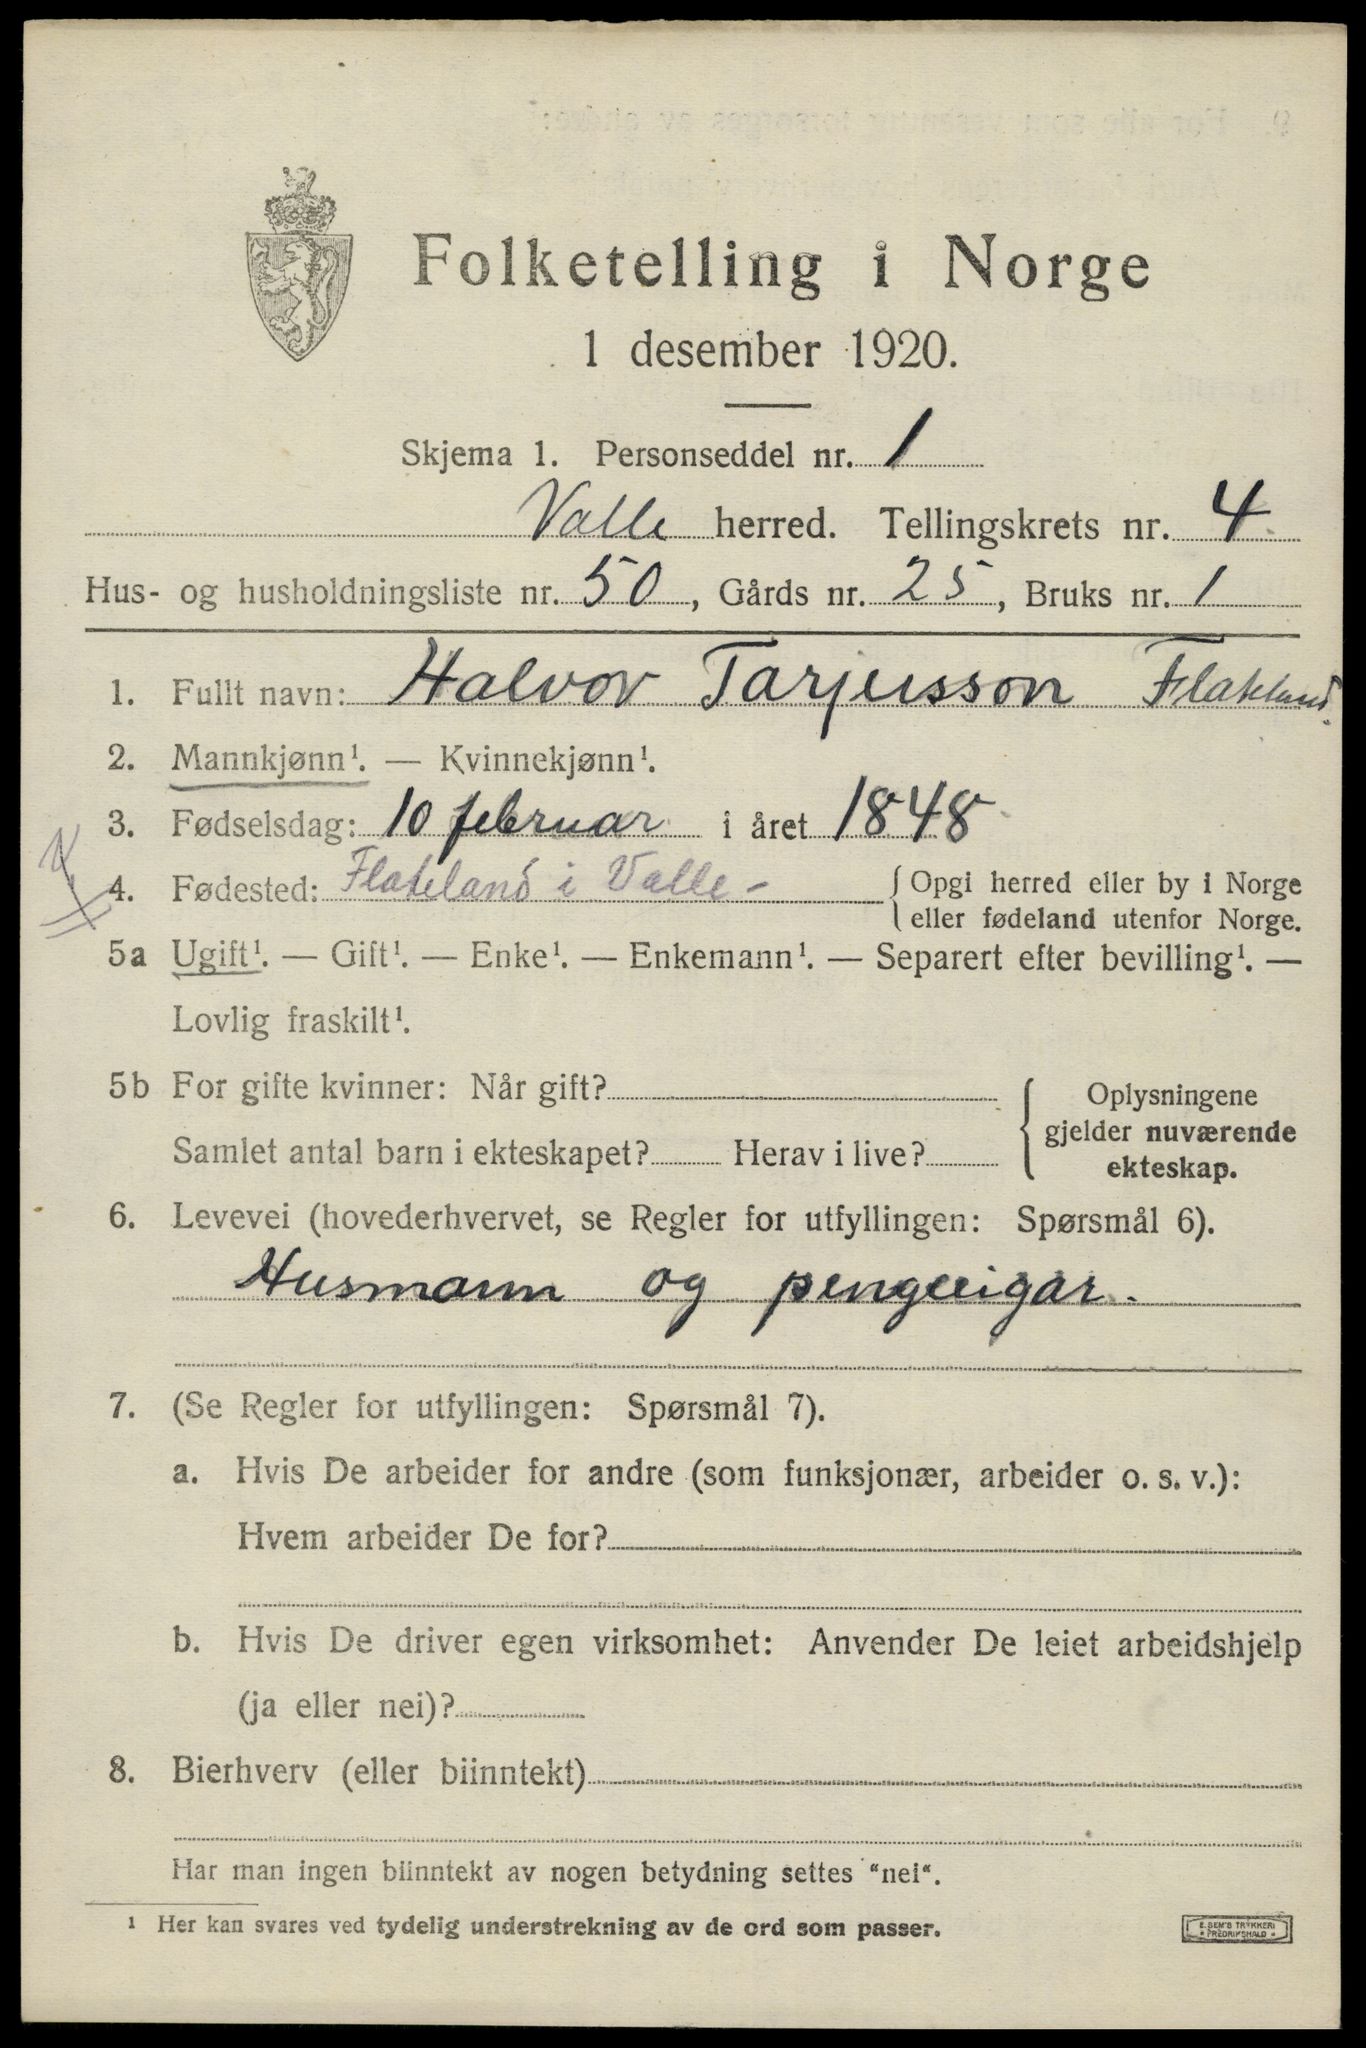 Folketelling i Norge
1 desember 1920.
Skjema 1. Personseddel nr. 1
Valle herred. Tellingskrets nr. 4
Hus- og husholdningsliste nr. 50, Gårds nr. 25, Bruks nr. 1
1. Fullt navn: Halvor Tarjeisson Flateland.
2. Mannkjønn¹. — Kvinnekjønn¹.
3. Fødselsdag: 10 februar i året 1848
4. Fødested: Flateland i Valle - { Opgi herred eller by i Norge
eller fødeland utenfor Norge.
5a Ugift¹. — Gift¹. — Enke¹. — Enkemann¹. — Separert efter bevilling¹. —
Lovlig fraskilt¹.
5b For gifte kvinner: Når gift?
Samlet antal barn i ekteskapet? Herav i live?
{ Oplysningene
gjelder nuværende
ekteskap.
6. Levevei (hovederhvervet, se Regler for utfyllingen: Spørsmål 6).
Husmann og pengeeigar.
7. (Se Regler for utfyllingen: Spørsmål 7).
a. Hvis De arbeider for andre (som funksjonær, arbeider o. s. v.):
Hvem arbeider De for?
b. Hvis De driver egen virksomhet: Anvender De leiet arbeidshjelp
(ja eller nei)?
8. Bierhverv (eller biinntekt)
Har man ingen biinntekt av nogen betydning settes "nei".
¹ Her kan svares ved tydelig understrekning av de ord som passer.
E. SEM'S TRYKKERI
* FREDRIKSHALD *